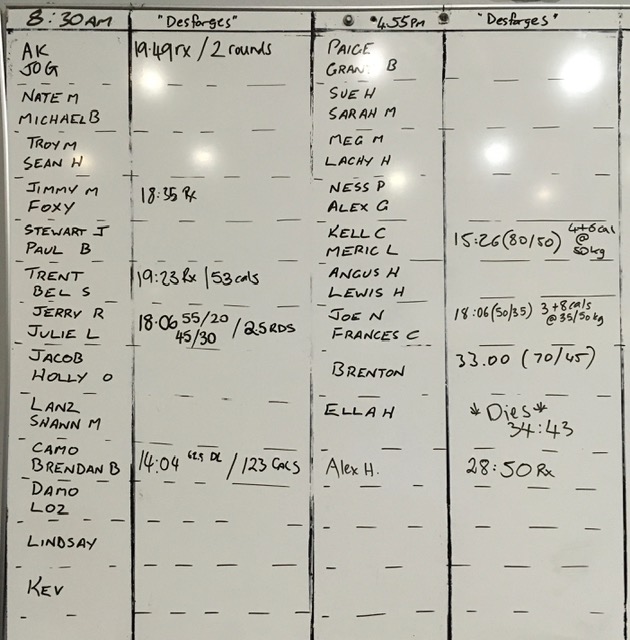 8:30AM
"Desforges"
AK
JOG
19.49rx / 2 rounds
NATE M
MICHAEL B
TROY M
SEAN H
JIMMY M
FOXY
18:35 Rx
STEWART J
PAUL B
TRENT
BEL S
19:23 Rx / 53 cals
JERRY R
JULIE L
18.06 55/20
45/30 / 2.5 RDS
JACOB
HOLLY O
LANZ
SHANN M
CAMO
BRENDAN B
14:04 62.5 DL / 123 CALS
DAMO
LOZ
LINDSAY
KEV
4.55PM
"Desforges"
PAIGE
GRANT B
SUE H
SARAH M
MEG M
LACHY H
NESS P
ALEX G
KELL C
MERIC L
15:26 (80/50) 4+6cal
@
50kg
ANGUS H
LEWIS H
JOE N
FRANCES C
18:06 (50/35) 3+8cals
@35/50kg
BRENTON
33.00 (70/45)
ELLA H
*Dies*
34:43
Alex H.
28:50 Rx